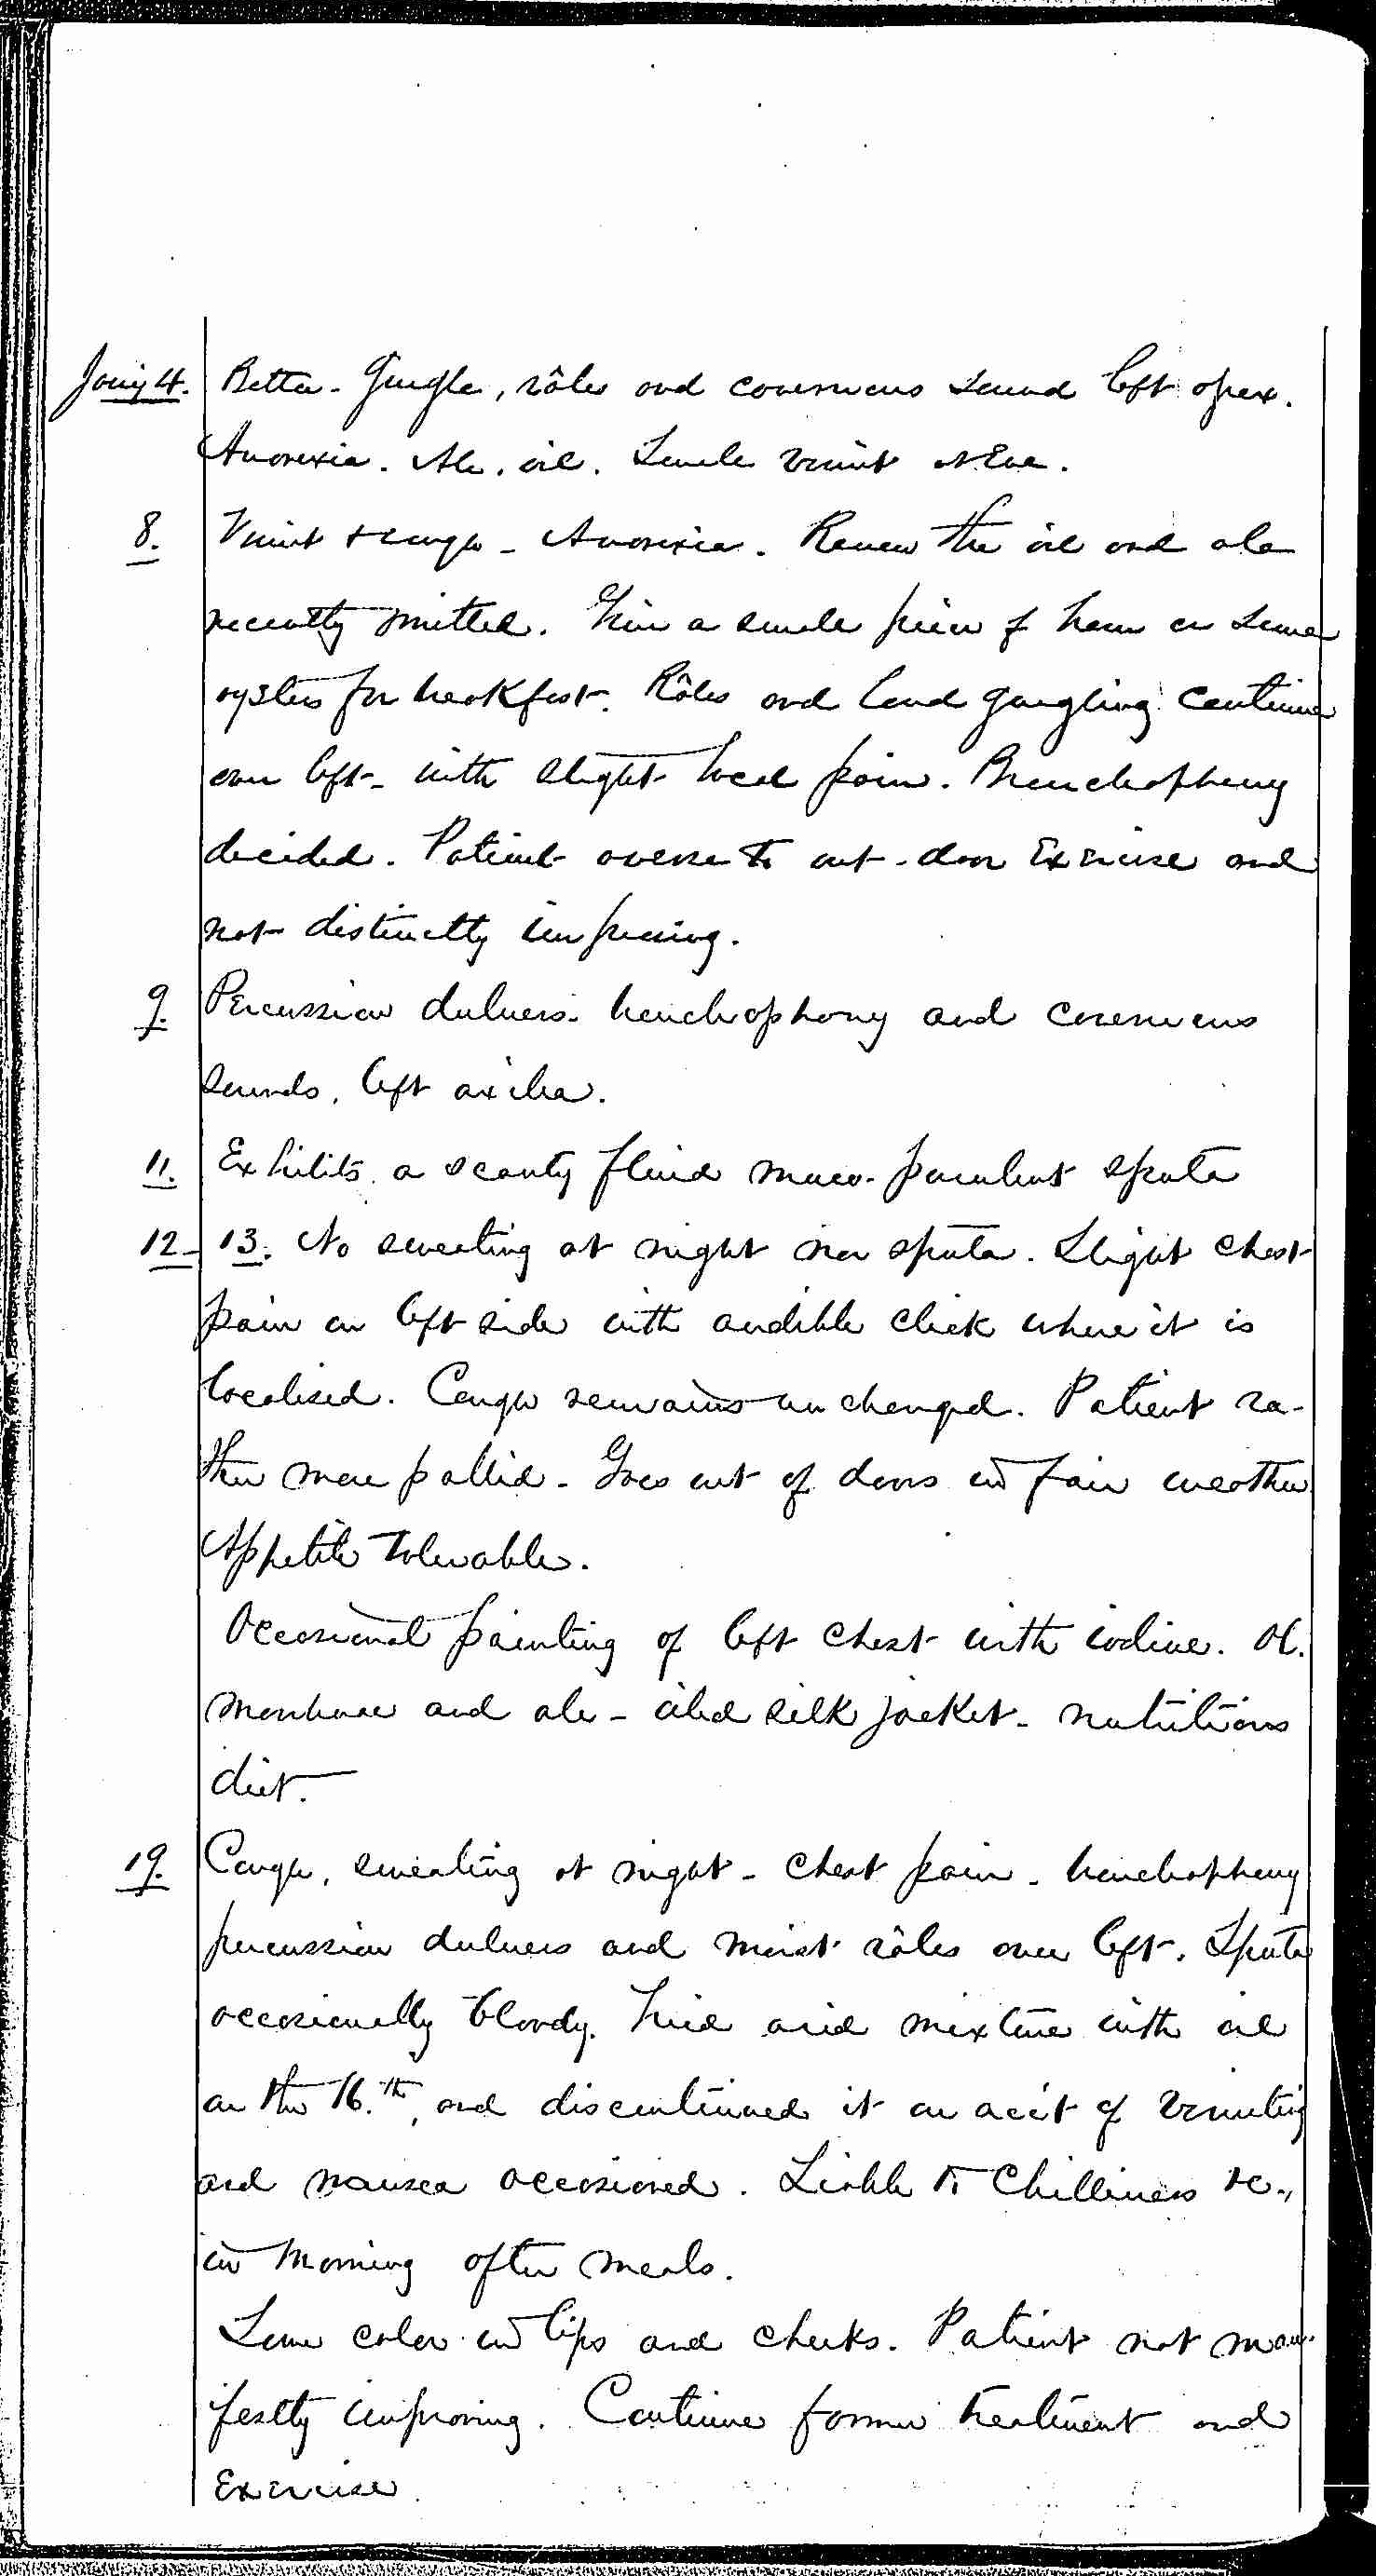 Jan'y 4. Better - Gurgle, râles and cavernous sound left apex.
Anorexia. Ale, oil. Small vomit
8. Vomit & cough - Anorexia. Renew the oil and ale
recently omitted. Give a small piece of ham or some
oysters for breakfast. Râles and loud gurgling continue
over left - with slight local pain. Bronchophony
decided. Patient averse to out-door exercise and
not distinctly improving.
9. Percussion dulness - bronchophony and cavernous
sounds, left axilla.
11. Exhibits a scanty fluid muco-purulent sputa
12-13. No sweating at night nor sputa. Slight chest
pain on left side with audible click where it is
localised. Cough remains unchanged. Patient ra-
ther more pallid - Goes out of doors in fair weather
Appetite tolerable.
Occasional painting of left chest with iodine. Ol.
morrhuae and ale - oiled silk jacket - nutritious
diet.
19. Cough, sweating at night - Chest pain - bronchophony
percussion dulness and moist râles over left. Sputa
occasionally bloody. Tried acid mixture with oil
on the 16.th, and discontinued it on acc't of vomiting
and nausea occasioned. Liable to Chilliness &c.,
in Morning after meals.
Some color in lips and cheeks. Patient not man-
ifestly improving. Continue former treatment and
Exercise.